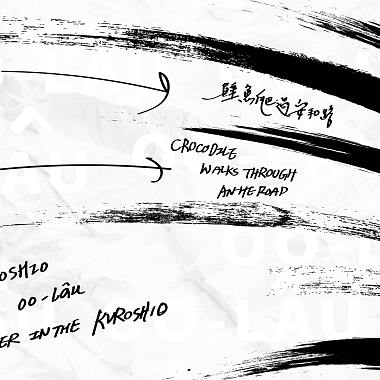 鱷魚爬過安和路
CROCODILE
WALKS THROUGH
AN HE ROAD
OSHIO
OO-Lâu
ER IN THE KUROSHIO
OO-LAU